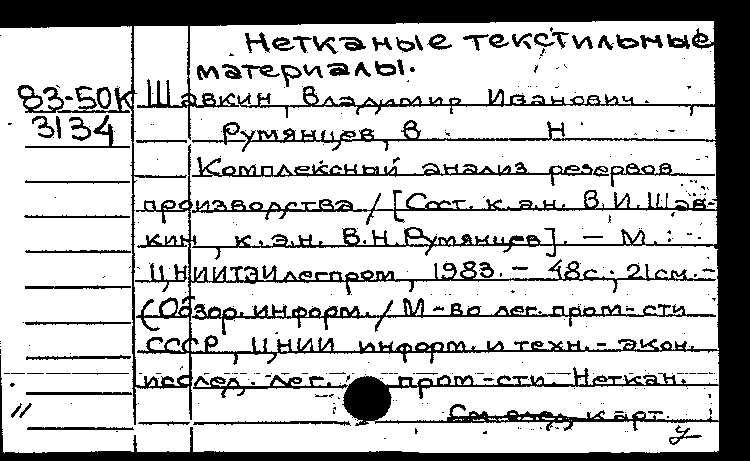 Нетканые текстильные
материалы.
83-50К Шавкин, Владимир Иванович.,
3134 Румянцев, В Н
Комплексный анализ резервов
производства / [Сост. к.э.н. В.И.Шав-
кин, к.э.н. В.Н.Румянцев]. - М.:
ЦНИИТЭИлегпром, 1983. - 48с.; 21см.-
(Обзор. информ. / М-во лег. пром-сти
СССР, ЦНИИ информ. и техн.-экон.
исслед. лег. пром-сти. Неткан.
См. след. карт.